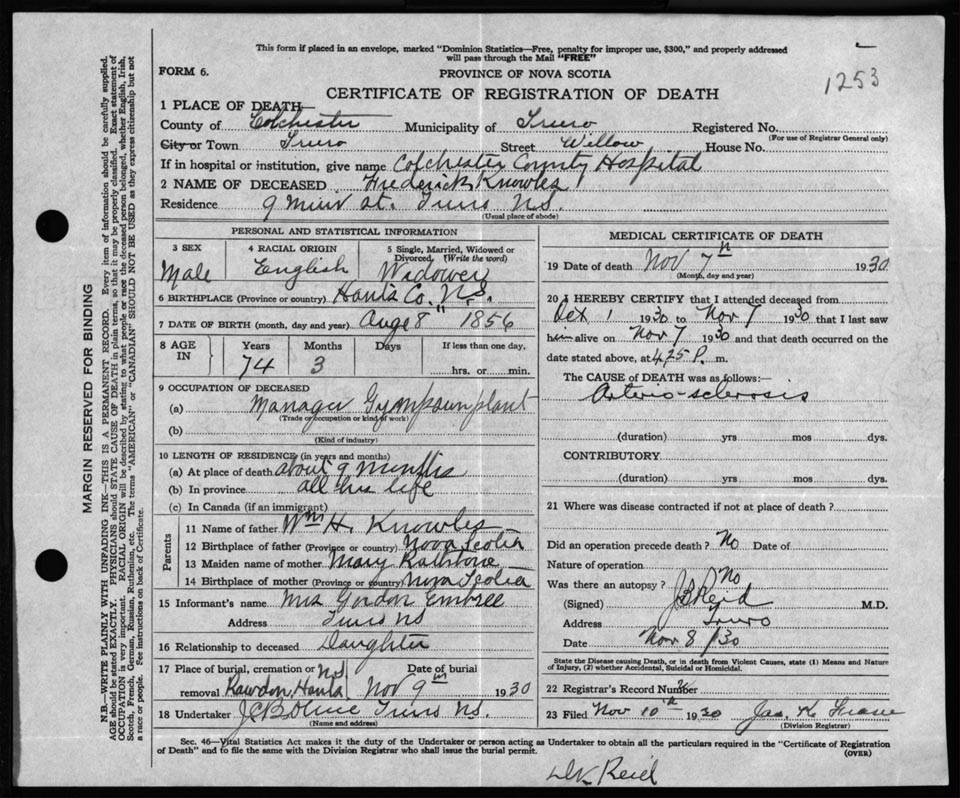 This form if placed in an envelope, marked "Dominion Statistics—Free, penalty for improper use, $300," and properly addressed
will pass through the Mail "FREE"
FORM 6.
PROVINCE OF NOVA SCOTIA
1253
CERTIFICATE OF REGISTRATION OF DEATH
1 PLACE OF DEATH
County of Colchester Municipality of Truro Registered No.
(For use of Registrar General only)
City or Town Truro Street Willow House No.
If in hospital or institution, give name Colchester County Hospital
2 NAME OF DECEASED Frederick Knowles
Residence 9 St. Truro N.S.
(Usual place of abode)
PERSONAL AND STATISTICAL INFORMATION
3 SEX 4 RACIAL ORIGIN 5 Single, Married, Widowed or Divorced. (Write the word)
Male English Widower
6 BIRTHPLACE (Province or country) Hants Co. N.S.
7 DATE OF BIRTH (month, day and year) Auge 8" 1856
8 AGE IN Years Months Days If less than one day,
74 3 hrs. or min.
9 OCCUPATION OF DECEASED
(a) Manager plant
(Trade or occupation or kind of work)
(b)
(Kind of industry)
10 LENGTH OF RESIDENCE (in years and months)
(a) At place of death about 9 months
(b) In province all his life
(c) In Canada (if an immigrant)
Parents
11 Name of father Wm H. Knowles
12 Birthplace of father (Province or country) Nova Scotia
13 Maiden name of mother Mary
14 Birthplace of mother (Province or country) Nova Scotia
15 Informant's name Mrs Gordon Embree
Address Truro NS
16 Relationship to deceased Daughter
17 Place of burial, cremation or removal Rawdon, Hants N.S. Date of burial Nov 9th 1930
18 Undertaker Truro N.S.
(Name and address)
MEDICAL CERTIFICATE OF DEATH
19 Date of death Nov 7th 1930
(Month, day and year)
20 I HEREBY CERTIFY that I attended deceased from
Oct 1 1930 to Nov 7 1930 that I last saw
him alive on Nov 7 1930 and that death occurred on the
date stated above, at 4.25 P. m.
The CAUSE of DEATH was as follows:
Arterio-sclerosis
(duration) yrs mos dys.
CONTRIBUTORY
(duration) yrs mos dys.
21 Where was disease contracted if not at place of death?
Did an operation precede death? No Date of
Nature of operation
Was there an autopsy? No
(Signed) Reid M.D.
Address Truro
Date Nov 8/30
State the Disease causing Death, or in death from Violent Causes, state (1) Means and Nature
of Injury, (2) whether Accidental, Suicidal or Homicidal.
22 Registrar's Record Number
23 Filed Nov 10th 1930 Jas.
(Division Registrar)
Sec. 46—Vital Statistics Act makes it the duty of the Undertaker or person acting as Undertaker to obtain all the particulars required in the "Certificate of Registration
of Death" and to file the same with the Division Registrar who shall issue the burial permit.
(OVER)
Reid
MARGIN RESERVED FOR BINDING
N.B.—WRITE PLAINLY WITH UNFADING INK—THIS IS A PERMANENT RECORD. Every item of information should be carefully supplied.
AGE should be stated EXACTLY. PHYSICIANS should STATE CAUSE OF DEATH in plain terms, so that it may be properly classified. Exact statement of
OCCUPATION is very important. RACIAL ORIGIN will be described by stating to what people or race the deceased person belonged, whether English, Irish,
Scotch, French, German, Russian, Ruthenian, etc. The terms "AMERICAN" or "CANADIAN" SHOULD NOT BE USED as they express citizenship but not
a race or people. See instructions on back of Certificate.